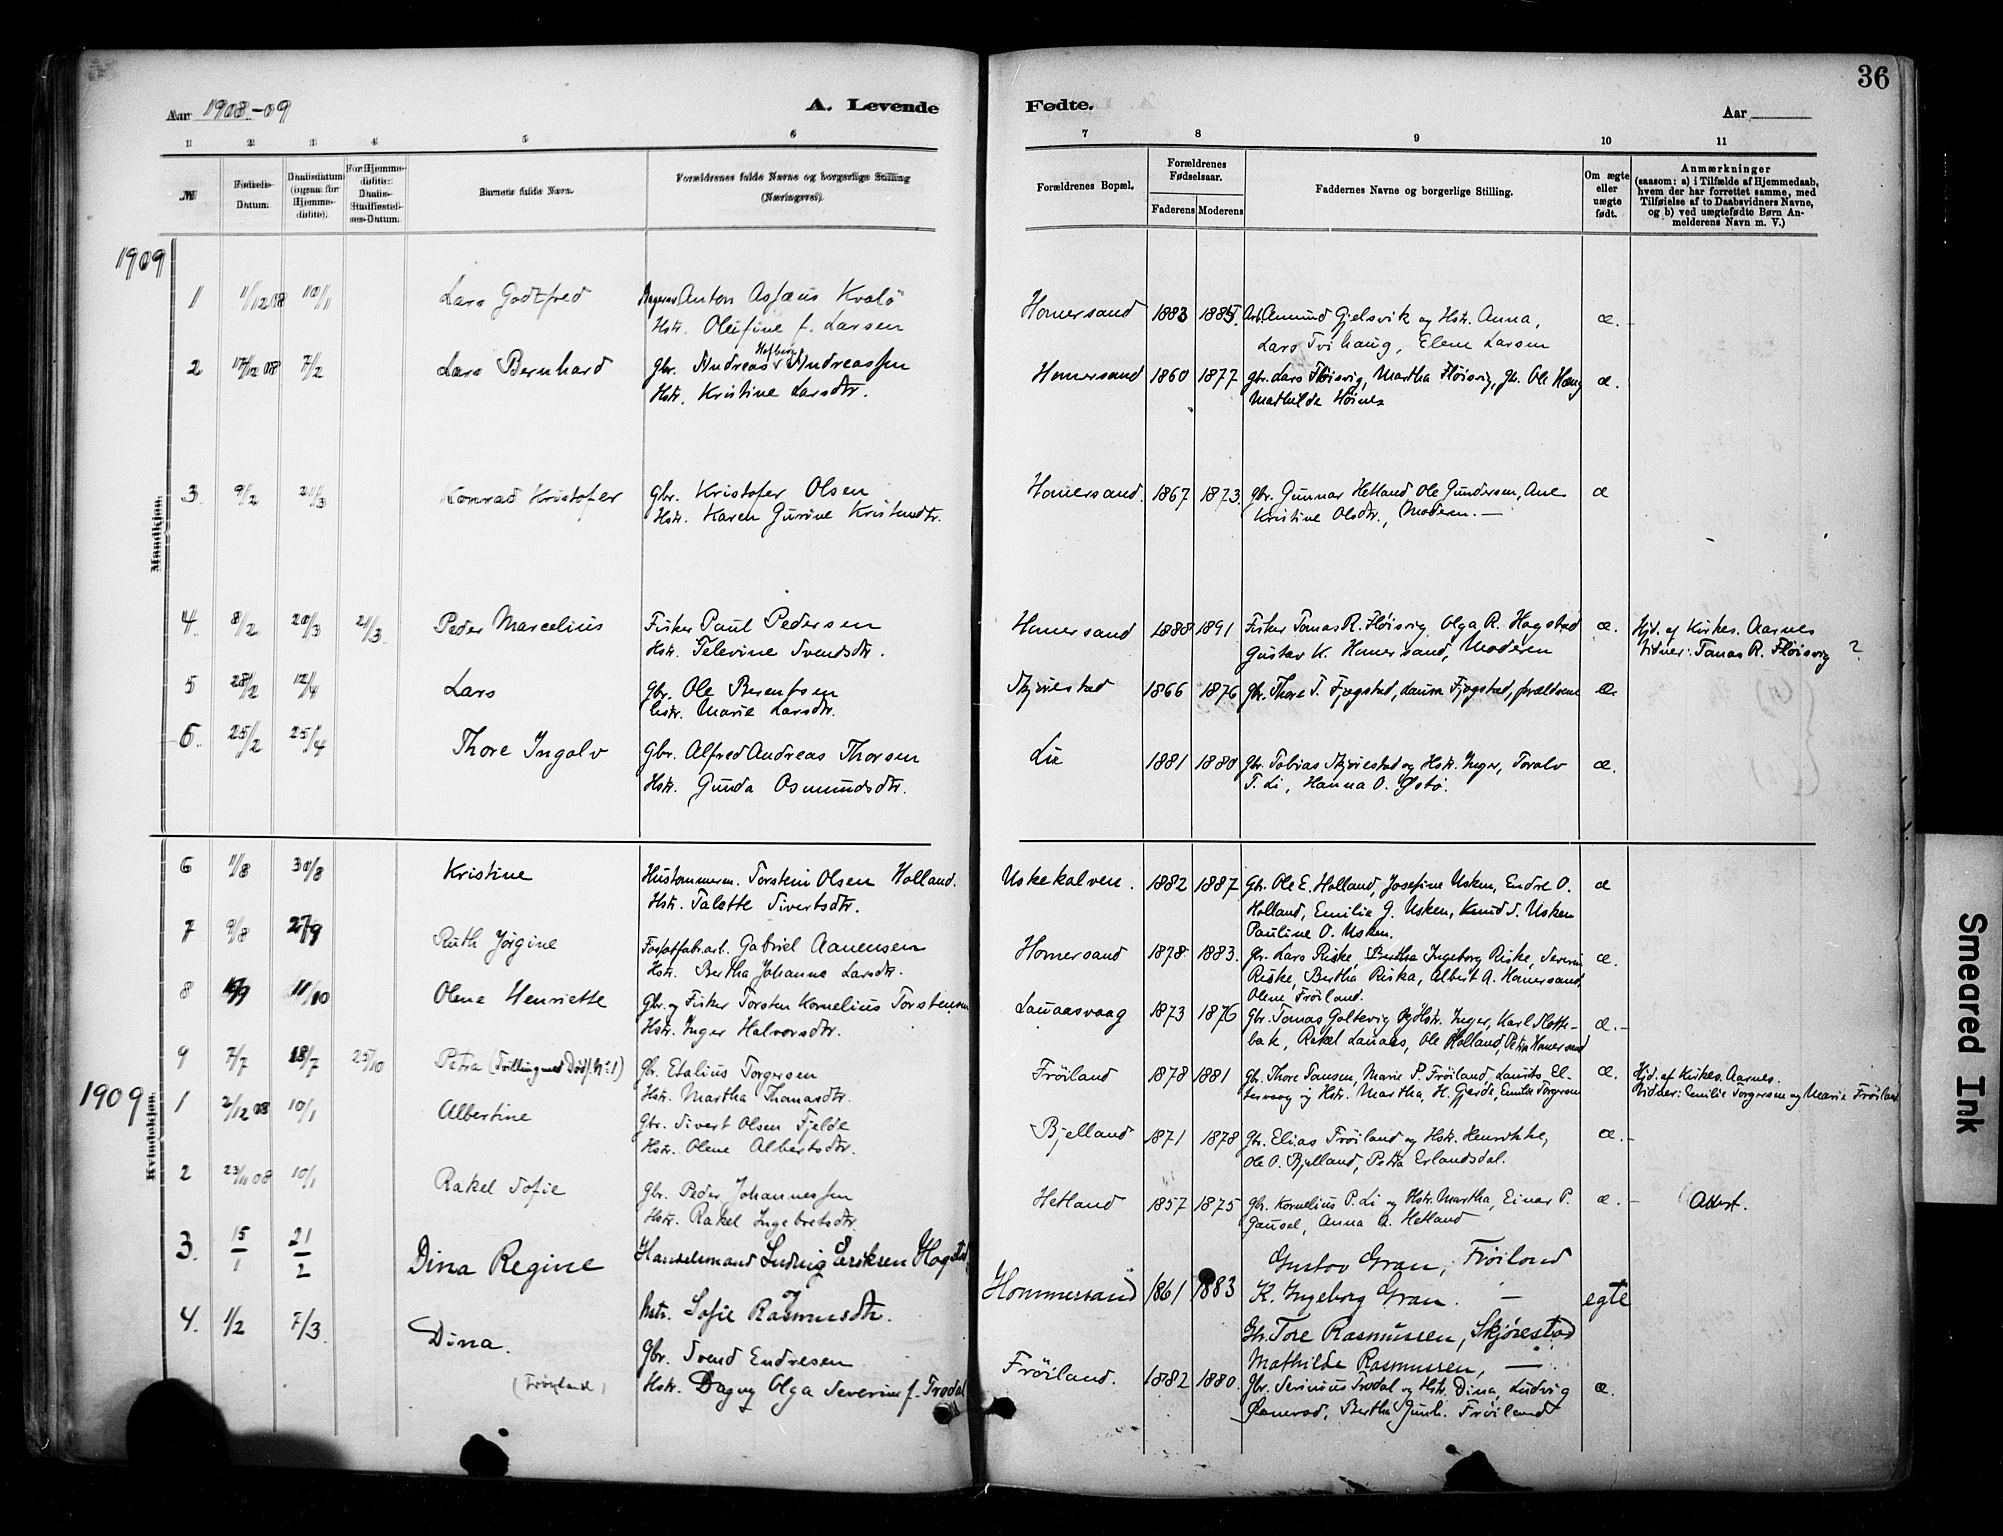 36
Aar 1908-09
A. Levende
Fødte.
Aar
1 2 3 4 5 6 7 8 9 10 11
№
Fødsels-Datum.
Daabsdatum (ogsaa for Hjemmedøbte).
For Hjemmedøbte: Daabs-Stadfæstelses-Datum.
Barnets fulde Navn.
Forældrenes fulde Navne og borgerlige Stilling (Næringsvei).
Forældrenes Bopæl.
Forældrenes Fødselsaar.
Faderens Moderens
Faddernes Navne og borgerlige Stilling.
Om ægte eller uægte født.
Anmærkninger
(saasom: a) i Tilfælde af Hjemmedaab, hvem der har forrettet samme, med Tilføielse af to Daabsvidners Navne, og b) ved uægtefødte Børn Anmelderens Navn m. V.)
1909
Mandkjøn.
1 11/12 08 10/1 Lars Godtfred Anton Asfæus Kvalö
Hstr. Olufine f. Larsen
Homersand 1883 Amund Gjelsvik og Hstr. Anna,
Lars Tvihaug, Elene Larsen
æ.
2 17/12 08 7/2 Lars Bernhard Gbr. Andreas Andreassen
Hstr. Kristine Larsdtr.
Homersand 1860 1877 gbr. Lars Fløisvig, Martha Fløisvig, Ole Haug
Mathilde Høines
æ.
3 9/2 21/3 Konrad Kristofer Gbr. Kristofer Olsen
Hstr. Karen Gurine
Homersand. 1867 1873. Gbr. Gunnar Hetland, Ole Gundersen, Ane
Kristine Olsdtr., Moderen. —
æ
4. 8/2 20/3 21/3 Peder Marcelius Fisker Paul Pedersen
Hstr. Televine Svendsdtr.
Homersand 1888 1891 Fisker Tomas R. Fløisvig, Olga R. Hogstad
Gustav K. Homersand, Moderen
æ. Hjd. af Kirkes. Aarnes
Vidner: Tomas R. Fløisvig ?
5 28/2 12/4 Lars Gbr. Ole Berentsen
Hstr. Marie Larsdtr.
1866 1876 Gbr. Thore T. Fjogstad, Laura Fjogstad, forældrene
æ.
6. 25/2 25/4 Thore Ingolv Gbr. Alfred Andreas Thorsen
Hstr. Gunda Osmundsdtr.
Lie 1881 1880 Gbr. Tobias Skjørestad og Hstr. Inger, Toralv
T. Li, Hanna O. Østbø.
æ.
6 11/8 30/8 Kristine Hustømmerm. Torstein Olsen Holland.
Hstr. Talette Sivertsdtr.
Uskekalven. 1882 1887 Gbr. Ole E. Holland, Josefine Usken, Endre O.
Holland, Emilie G. Usken, Knud S. Usken
Pauline O. Usken.
æ
7 9/8 27/9 Ruth Jørgine Gabriel Aanensen
Hstr. Bertha Johanne Larsdtr.
Homersand 1878 1883. Gbr. Lars Riske, Bertha Ingeborg Riske, Severin
Riske, Bertha Riska, Albert A. Homersand,
Olene Frøiland.
æ.
8 11/10 Olena Henriette Gbr. og Fisker Torsten Kornelius Torstensen
Hstr. Inger Halvorsdtr.
Lauaasvaag 1873 1876 Gbr. Tomas og Hstr. Inger, Karl
bak, Rakel Lauaas, Ole Holland, Petra Homersand
æ.
1909
Kvindekjøn.
9 7/7 18/7 25/10 Petra (Tvilling med Død f. № 1) Gbr. Etalius Torgersen
Hstr. Martha Thomasdtr.
Frøiland 1878 1881 Gbr. Thore Tomsen, Marie P. Frøiland, Laurits El-
og Hstr. Martha, H. Gjerde, Emilie Torgersen
æ. Hjd. af Kirkes. Aarnes.
Vidner: Emilie Torgersen og Marie Frøiland
1 2/12 08 10/1 Albertine Gbr. Sivert Olsen Fjelde
Hstr. Olene Albertsdtr.
Bjelland 1871 1878 Gbr. Elias Frøiland og Hstr. Henrikke,
Ole O. Bjelland, Petra Erlandsdal.
æ.
2 23/11 08 10/1 Rakel Sofie Gbr. Peder Johannessen
Hstr. Rakel Ingebretsdtr.
Hetland 1857 1875 Gbr. Kornelius P. Li og Hstr. Martha, Einar P.
Gausel, Anna A. Hetland
æ. Attest.
3. 15/1 21/2 Dina Regine Handelsmand Ludvig Eriksen Hogstad
Hstr. Sofie Rasmusdtr.
Hommersand 1861 1883 Gustav Gran, Frøiland
K. Ingeborg Gran. —
Gbr. Tore Rasmussen, Skjørestad
Mathilde Rasmussen, —
egte
4. 1/2 7/3 Dina. Gbr. Svend Endresen
(Frøyland) Hstr. Dagny Olga Severine f. Trodal
Frøiland. 1882 1880. Gbr. Serinius Trodal og Hstr. Dina, Ludvig
Bertha Frøiland
æ.
Smeared Ink